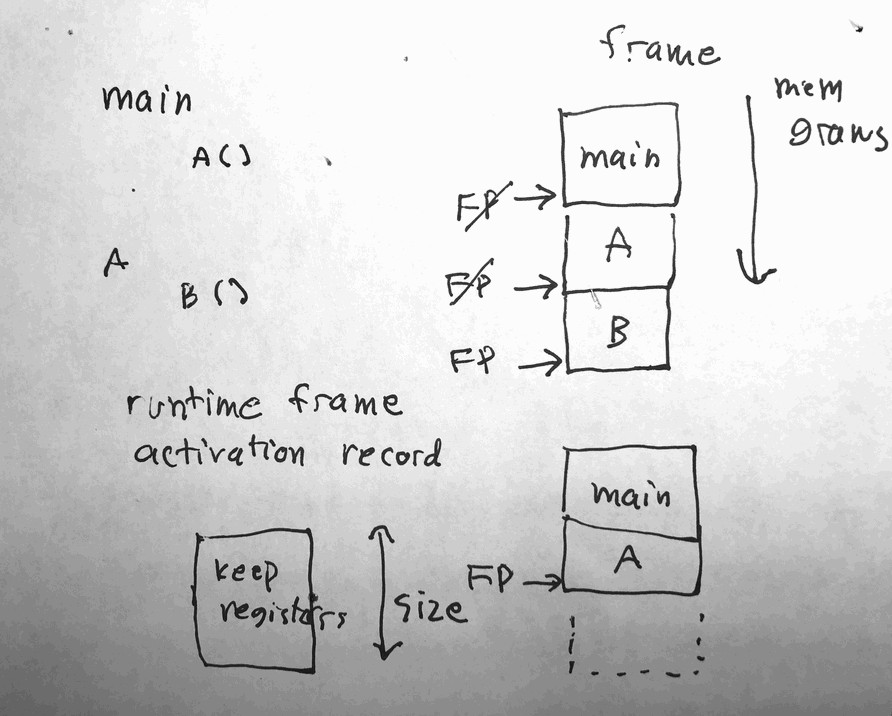 frame
main
A()
A
B()
mem
grows
main
FP
A
FP
B
FP
runtime frame
activation record
keep
registers
size
main
A
FP